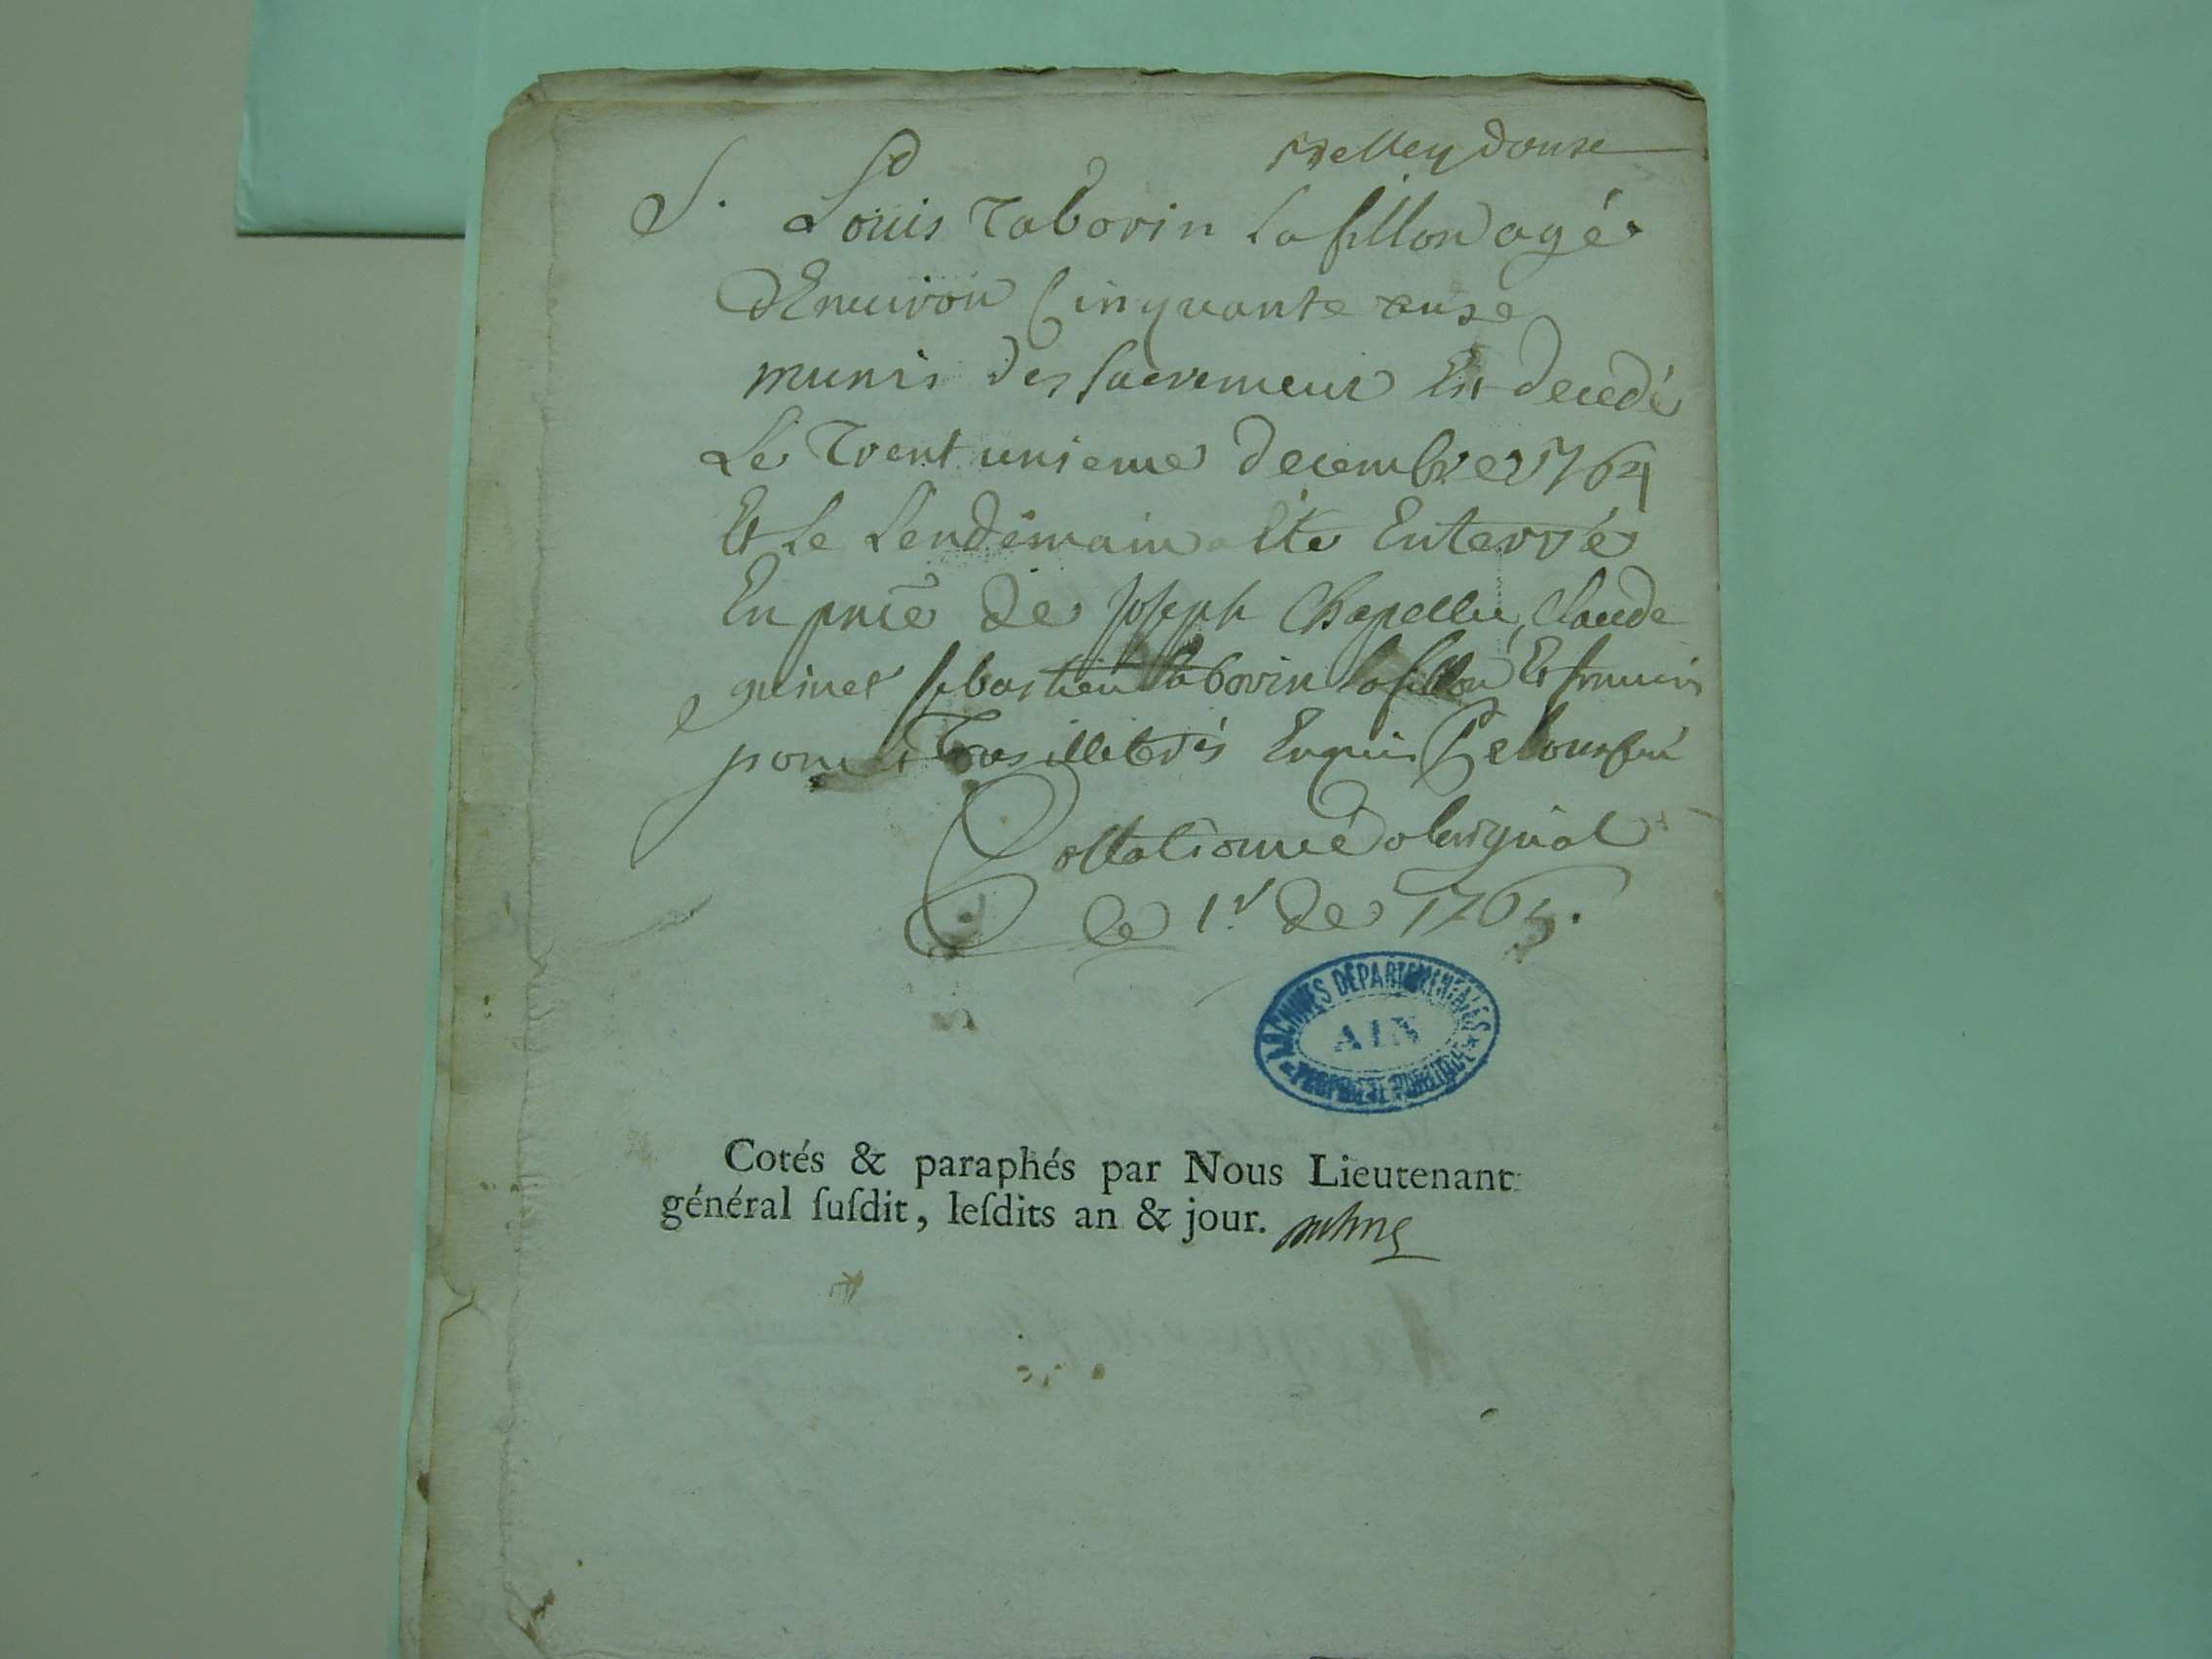 S. Louis Taborin Lafillon agé
d'Environ Cinquante anse
munis des sacremens Est decedé
Le Trent unieme decembre 1764
Et Le Lendemain a été Enterré
En pñce de Joseph Chapellu, Claude
guinet sebastien taborin lafillon Et francois
poncet Tous illiterés Enquis
Collationné a loriginal
le 1.r de 1765.
ARCHIVES DEPARTEMENTALES
AIN
PROPRIÉTÉ PUBLIQUE
Cotés & paraphés par Nous Lieutenant
général ſuſdit, leſdits an & jour.